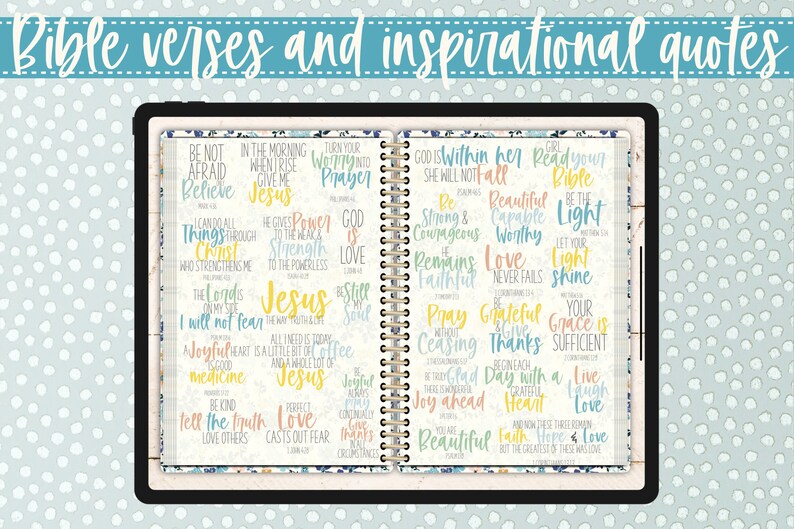 Bible verses and inspirational quotes
BE NOT
AFRAID
Believe
MARK 5:36
IN THE MORNING
WHEN I RISE
GIVE ME
Jesus
TURN YOUR
Worry INTO
Prayer
PHILLIPIANS 4:6
I CAN DO ALL
Things THROUGH
Christ
WHO STRENGTHENS ME
HE GIVES Power
TO THE WEAK &
Strength
TO THE POWERLESS
ISAIAH 40:29
GOD
is
LOVE
1 JOHN 4:8
THE Lord IS
ON MY SIDE
I will not fear
Jesus
THE WAY TRUTH & LIFE
BE Still
MY
Soul
A Joyful HEART
IS GOOD
medicine
PROVERBS 17:22
ALL I NEED IS TODAY
IS A LITTLE BIT OF Coffee
AND A WHOLE LOT OF
Jesus
BE
Joyful
ALWAYS
pray
CONTINUALLY
Give
thanks
IN ALL
CIRCUMSTANCES
BE KIND
tell the truth
LOVE OTHERS
PERFECT
Love
CASTS OUT FEAR
1 JOHN 4:18
GOD IS Within her
SHE WILL NOT Fall
PSALM 46:5
GIRL
Read your
Bible
Be
Strong &
Courageous
Beautiful
Capable
Worthy
BE THE
Light
MATTHEW 5:14
HE
Remains
Faithful
2 TIMOTHY 2:13
Love
NEVER FAILS
1 CORINTHIANS 13:4
LET YOUR
Light
shine
MATTHEW 5:16
Pray
WITHOUT
Ceasing
1 THESSALONIANS 5:17
BE
Grateful
& Give
Thanks
YOUR
Grace is
SUFFICIENT
2 CORINTHIANS 12:9
BE TRULY Glad
THERE IS WONDERFUL
Joy ahead
1 PETER 1:6
BEGIN EACH
Day with a
GRATEFUL
Heart
Live
Laugh
Love
YOU ARE
Beautiful
AND NOW THESE THREE REMAIN
Faith, Hope & Love
BUT THE GREATEST OF THESE WAS LOVE
1 CORINTHIANS 13:13